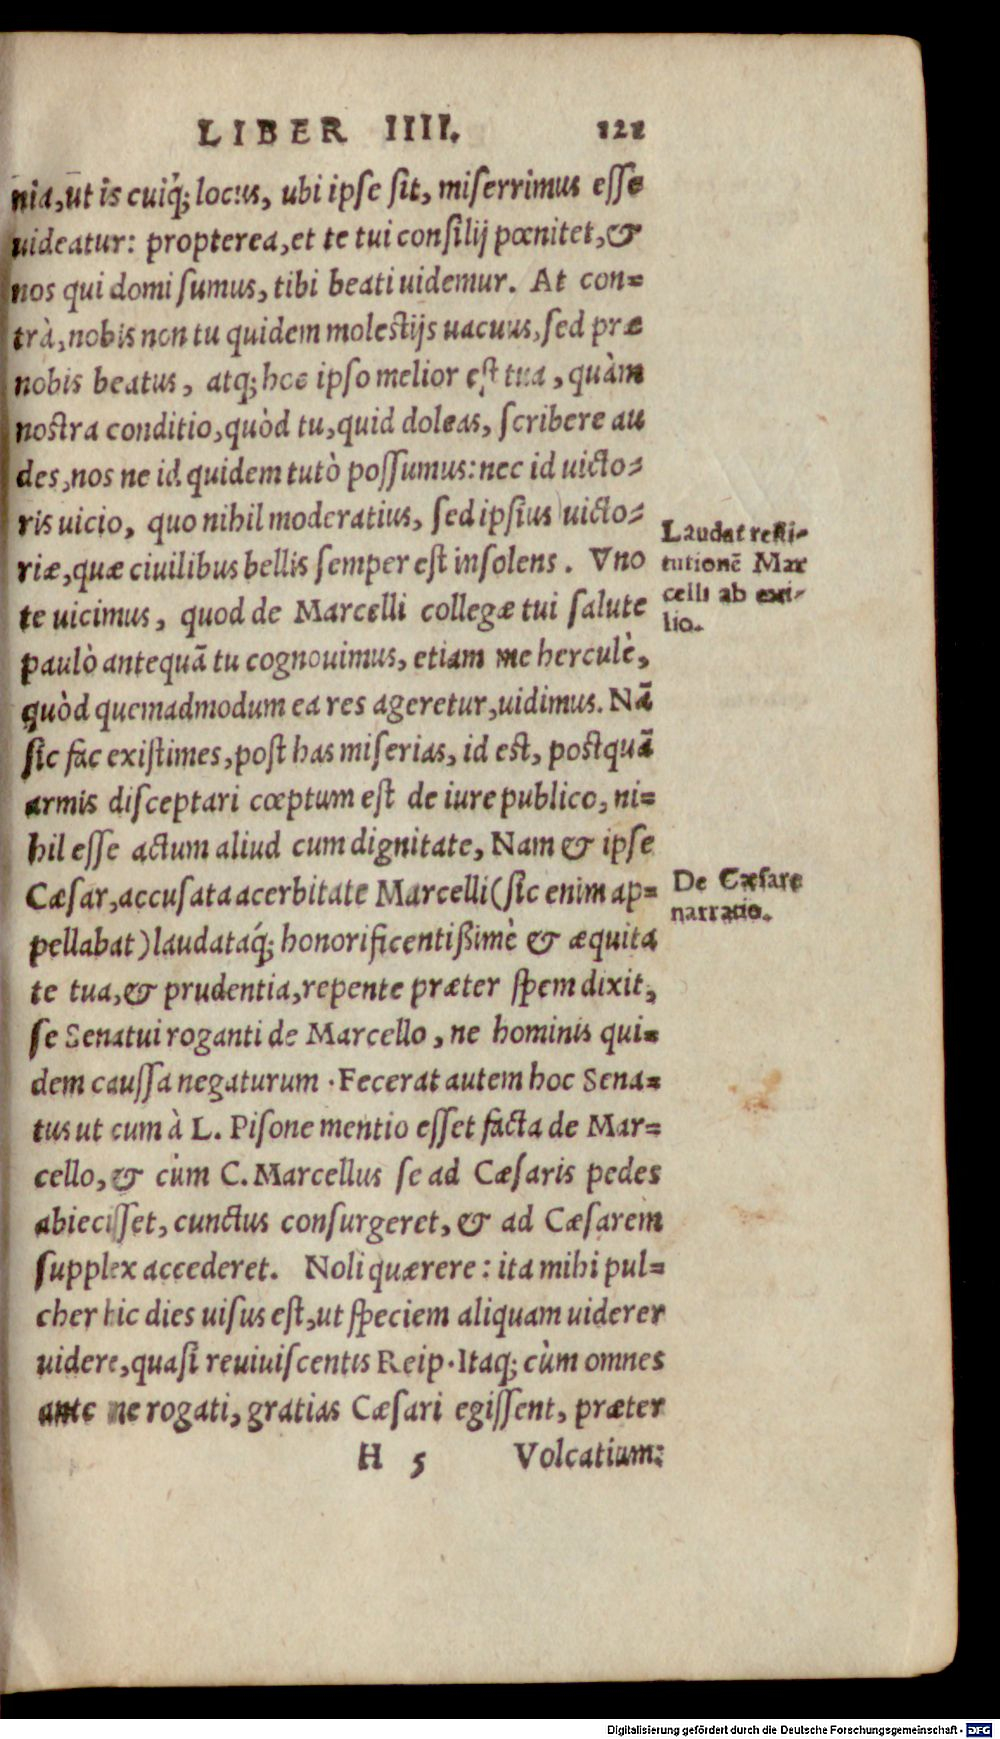 LIBER IIII. 121
nia, ut is cuiq́; locus, ubi ipse sit, miserrimus esse
uideatur: propterea, et te tui consilij pœnitet, &
nos qui domi sumus, tibi beati uidemur. At con=
trà, nobis non tu quidem molestijs uacuus, sed præ
nobis beatus, atq; hoc ipso melior est tua, quàm
nostra conditio, quòd tu, quid doleas, scribere au
des, nos ne id quidem tutò possumus: nec id uicto=
ris uicio, quo nihil moderatius, sed ipsius uicto=
riæ, quæ ciuilibus bellis semper est insolens. Vno
te uicimus, quod de Marcelli collegæ tui salute
paulò antequã tu cognouimus, etiam me herculè,
quòd quemadmodum ea res ageretur, uidimus. Nã
sic fac existimes, post has miserias, id est, postquã
armis disceptari cœptum est de iure publico, ni=
hil esse actum aliud cum dignitate, Nam & ipse
Cæsar, accusata acerbitate Marcelli (sic enim ap=
pellabat) laudataq́; honorificentißimè & æquita
te tua, & prudentia, repente præter spem dixit,
se Senatui roganti de Marcello, ne hominis qui=
dem caussa negaturum. Fecerat autem hoc Sena=
tus ut cum à L. Pisone mentio esset facta de Mar=
cello, & cùm C. Marcellus se ad Cæsaris pedes
abiecisset, cunctus consurgeret, & ad Cæsarem
supplex accederet. Noli quærere: ita mihi pul=
cher hic dies uisus est, ut speciem aliquam uiderer
uidere, quasi reuiuiscentis Reip. Itaq; cùm omnes
ante me rogati, gratias Cæsari egissent, præter
H 5 Volcatium:
Laudat resti-
tutionẽ Mar
celli ab exi-
lio.
De Cæsare
narratio.
Digitalisierung gefördert durch die Deutsche Forschungsgemeinschaft - DFG